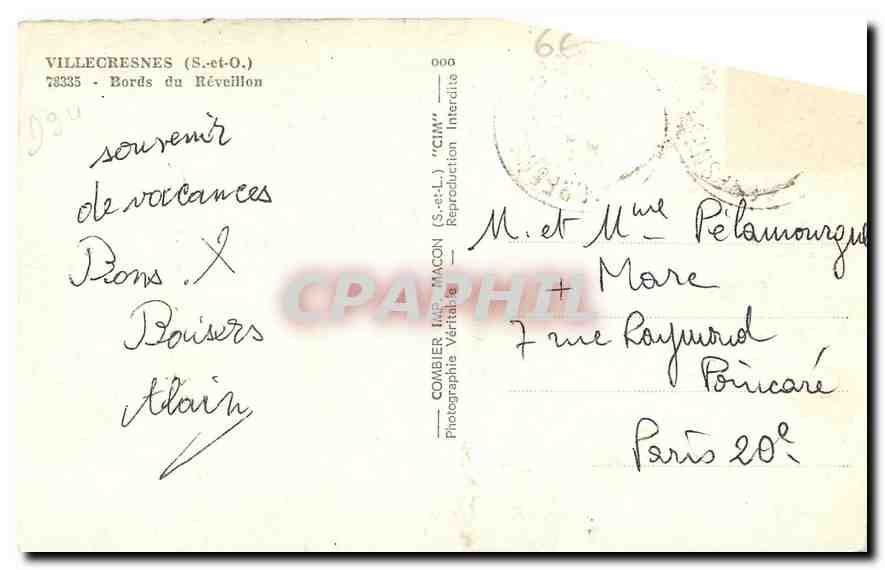 VILLECRESNES (S.-et-O.)
78335 - Bords du Réveillon
souvenir
de vacances
Bons. X
Baisers
Alain
COMBIER IMP. MACON (S.-et-L.) "CIM"
Photographie Véritable - Reproduction Interdite
000
66
M. et Mme Pélamourgue
+ Marc
7 rue Raymond
Poincaré
Paris 20e
CPAPHIL